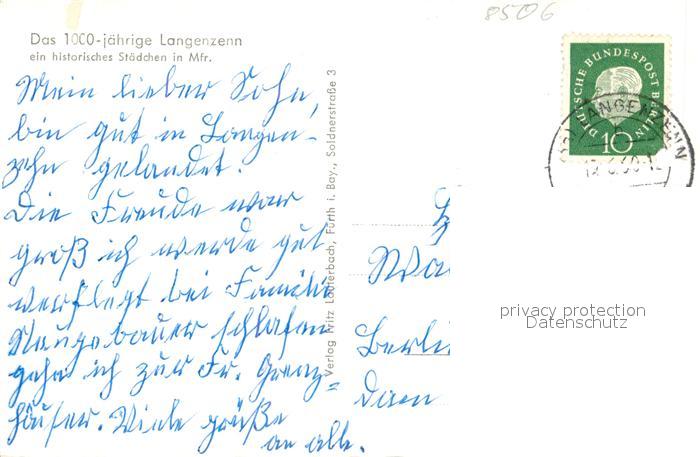 8506
Das 1000-jährige Langenzenn
ein historisches Städchen in Mfr.
Mein lieber Sohn,
bin gut in Langen-
zehn gelandet.
Die Freude war
groß ich werde gut
verflegt bei Familie
Naugebauer schlafen
gehe ich zur Fr. Grenz=
häuser. Viele grüße
an alle.
Verlag Fritz Lauterbach, Fürth i. Bay., Soldnerstraße 3
DEUTSCHE BUNDESPOST BERLIN
10
LANGENZENN
Wa
Berli
privacy protection
Datenschutz